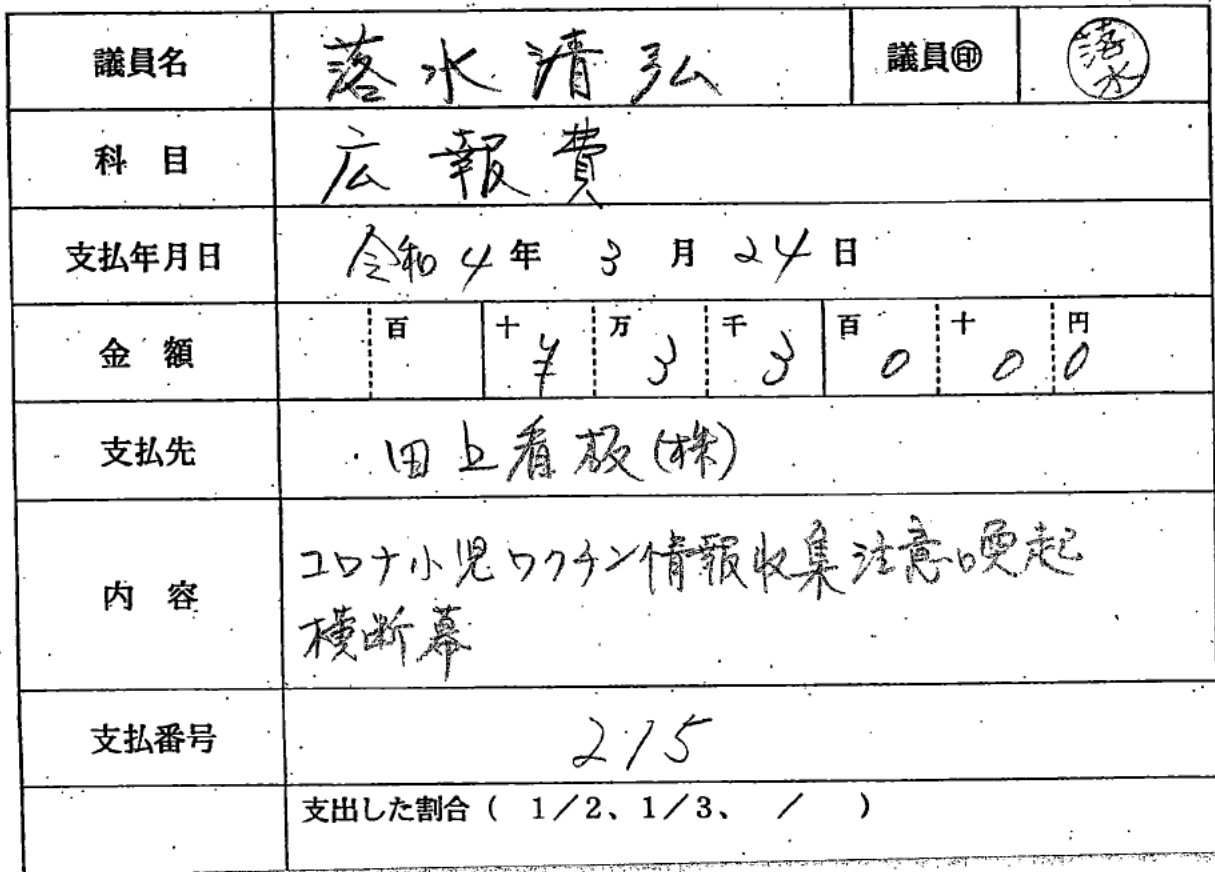 議員名 落水清弘 議員㊞ 落水
科目 広報費
支払年月日 令和4年3月24日
金額 百 十¥ 万3 千3 百0 十0 円0
支払先 田上看板(株)
内容 コロナ小児ワクチン情報収集注意喚起
横断幕
支払番号 215
支出した割合( 1/2、1/3、 / )